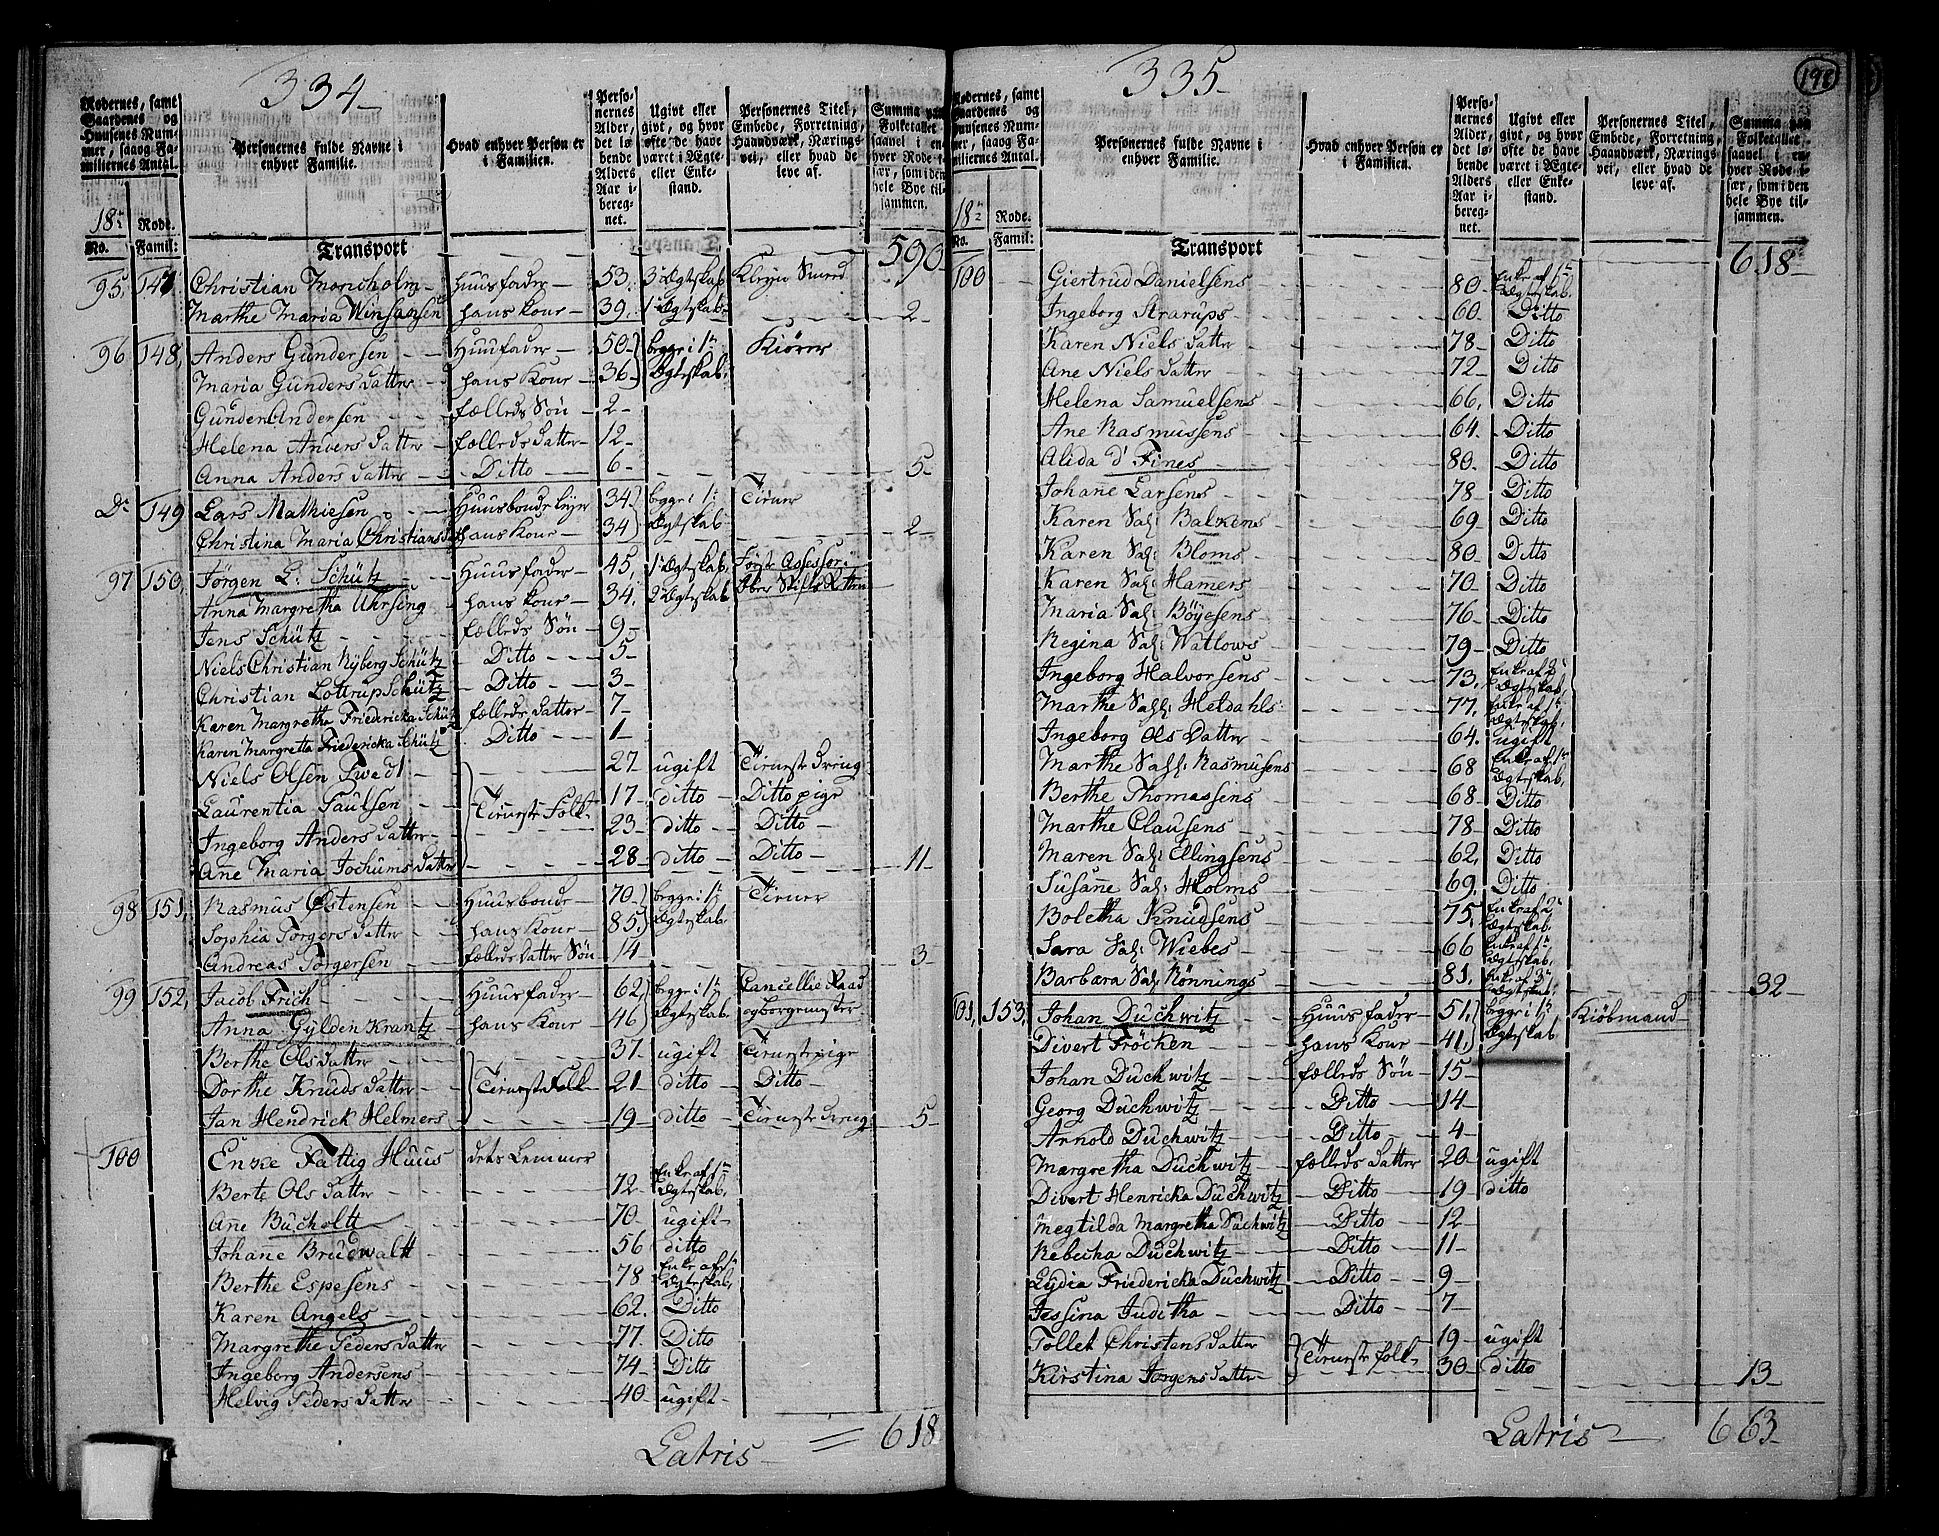 198
334
Rodernes, samt Gaardenes og Huusenes Nummer, saavog Familiernes Antal.
Personernes fulde Navne i enhver Familie.
Hvad enhver Person er i Familien.
Personernes Alder, det løbende Alders Aar iberegnet.
Ugivt eller givt, og hvor ofte de have været i Ægte- eller Enkestand.
Personernes Titel, Embede, Forretning, Haandværk, Næringsvei, eller hvad de leve af.
Summa paa Folketallet saavel i enhver Rode især, som i den hele Bye tilsammen.
18de Rode.
No. Famil:
Transport 590
95, 147 Christian Huusfader 53. 3die Ægtskab
Marthe Maria hans Kone 39. 1te Ægtskab 2
96 148, Anders Gundersen Huusfader 50 begge i 1te Kiører
Maria Gunders Datter hans Kone 36 Ægteskab.
Gunder Andersen fælleds Søn 2
Helena Anders Datter fælleds Datter 12
Anna Anders Datter Ditto 6 5
Do 149 Lars Mathiesen Huusbonde 34 begge i 1te Tiener
Christina Maria Christians Datter hans Kone 34 Ægteskab 2
97 150, Jörgen L: Schütz Huusfader 45, 1te Ægtskab, Først Assessor i
Anna Margretha hans Kone 34, 2 Ægteskab Over Stifts Retten
Jens Schütz fælleds Søn 9
Niels Christian Nyberg Schütz Ditto 5
Christian Lottrup Schütz Ditto 3
Karen Margretha Friedericka Schütz fælleds Datter 7
Karen Margretta Friedericka Schütz Ditto 1
Niels Olsen Twedt 27 ugift Tieneste Dreng
Laurentia Paulsen Tieneste Folk 17 ditto Ditto pige
Ingeborg Anders Datter 23 ditto Ditto
Ane Maria Jochums Datter 28 ditto Ditto 11
98 151, Rasmus Østensen Huusbonde 70 begge i 1te Tiener
Sophia Torgers Datter hans Kone 85. Ægteskab
Andreas Torgersen fælleds Datter Søn 14 3
99 152, Jacob Frich Huusfader 62, begge i 1te Cancellie Raad
Anna Gyldenkrantz hans Kone 46 Ægteskab og borgemester
Berthe Ols Datter 37. ugift Tieneste pige
Dorthe Knuds Datter Tieneste Folk 21 ditto Ditto
Jan Hendrick Helmers 19 ditto Tieneste Dreng 5
100 Enke Fattig Huus dets Lemmer
Berte Ols Datter 72 Enke af 1te Ægteskab.
Ane Bucholtt 70. ugift
Johane Brudwaltt 56 ditto
Berthe Espesens 78 Enke af 1te Ægteskab,
Karen Angels 62. Ditto
Margrethe Peders Datter 77. Ditto
Ingeborg Andersens 74. Ditto
Helvig Peders Datter 40 ugift
Latris 618
335
Rodernes, samt Gaardenes og Huusenes Nummer, saavog Familiernes Antal.
Personernes fulde Navne i enhver Familie.
Hvad enhver Person er i Familien.
Personernes Alder, det løbende Alders Aar iberegnet.
Ugivt eller givt, og hvor ofte de have været i Ægte- eller Enkestand.
Personernes Titel, Embede, Forretning, Haandværk, Næringsvei, eller hvad de leve af.
Summa paa Folketallet saavel i enhver Rode især, som i den hele Bye tilsammen.
18de Rode.
No. Famil:
Transport 618
100 Giertrud Danielsens 80 Enke af 1te Ægteskab.
Ingeborg Strarups 60. Ditto
Karen Niels Datter 78 Ditto
Ane Niels Datter 72 Ditto
Helena Samuelsens 66, Ditto
Ane Rasmussens 64. Ditto
Alida d' Fines 80. Ditto
Johane Larsens 78 Ditto
Karen Sal: Balzens 69 Ditto
Karen Sal: Bloms 80. Ditto
Karen Sal: Hamers 70. Ditto
Maria Sal: Böyesens 76 Ditto
Regina Sal: Watlows 79 Ditto
Ingeborg Halvorsens 73, Enke af 2de Ægteskab,
Marthe Sal: Heldahls 77, Enke af 1te Ægteskab,
Ingeborg Ols Datter 64. ugift
Marthe Sal: Rasmusens 68 Enke af 1te Ægteskab,
Berthe Thomassens 68 Ditto
Marthe Clausens 78 Ditto
Maren Sal: Ellingsens 62, Ditto
Susane Sal: Holms 69. Ditto
Boletha Knudsens 75, Enke af 2de Ægteskab
Sara Sal: Wiebes 66 Enke af 1te Ægteskab,
Barbara Sal: Rönnings 81. Enke af 3de Ægteskab, 32
101, 153, Johan Duchwitz Huusfader 51, begge i 1te Kiöbmand
Divert Fröchen hans Kone 41, Ægteskab
Johan Duchwitz fælleds Søn 15
Georg Duchwitz Ditto 14
Arnold Duchwitz Ditto 4
Margretha Duchwitz fælleds Datter 20 ugift
Divert Henricka Duchwitz Ditto 19 ditto
Megtilda Margretha Duchwitz Ditto 12
Rebecha Duchwitz Ditto 11
Lydia Friedericka Duchwitz Ditto 9
Jessina Juditha Ditto 7
Tollet Christens Datter Tieneste folk 19 ugift
Kirstina Jørgens Datter 30 ditto 13
Latris 663